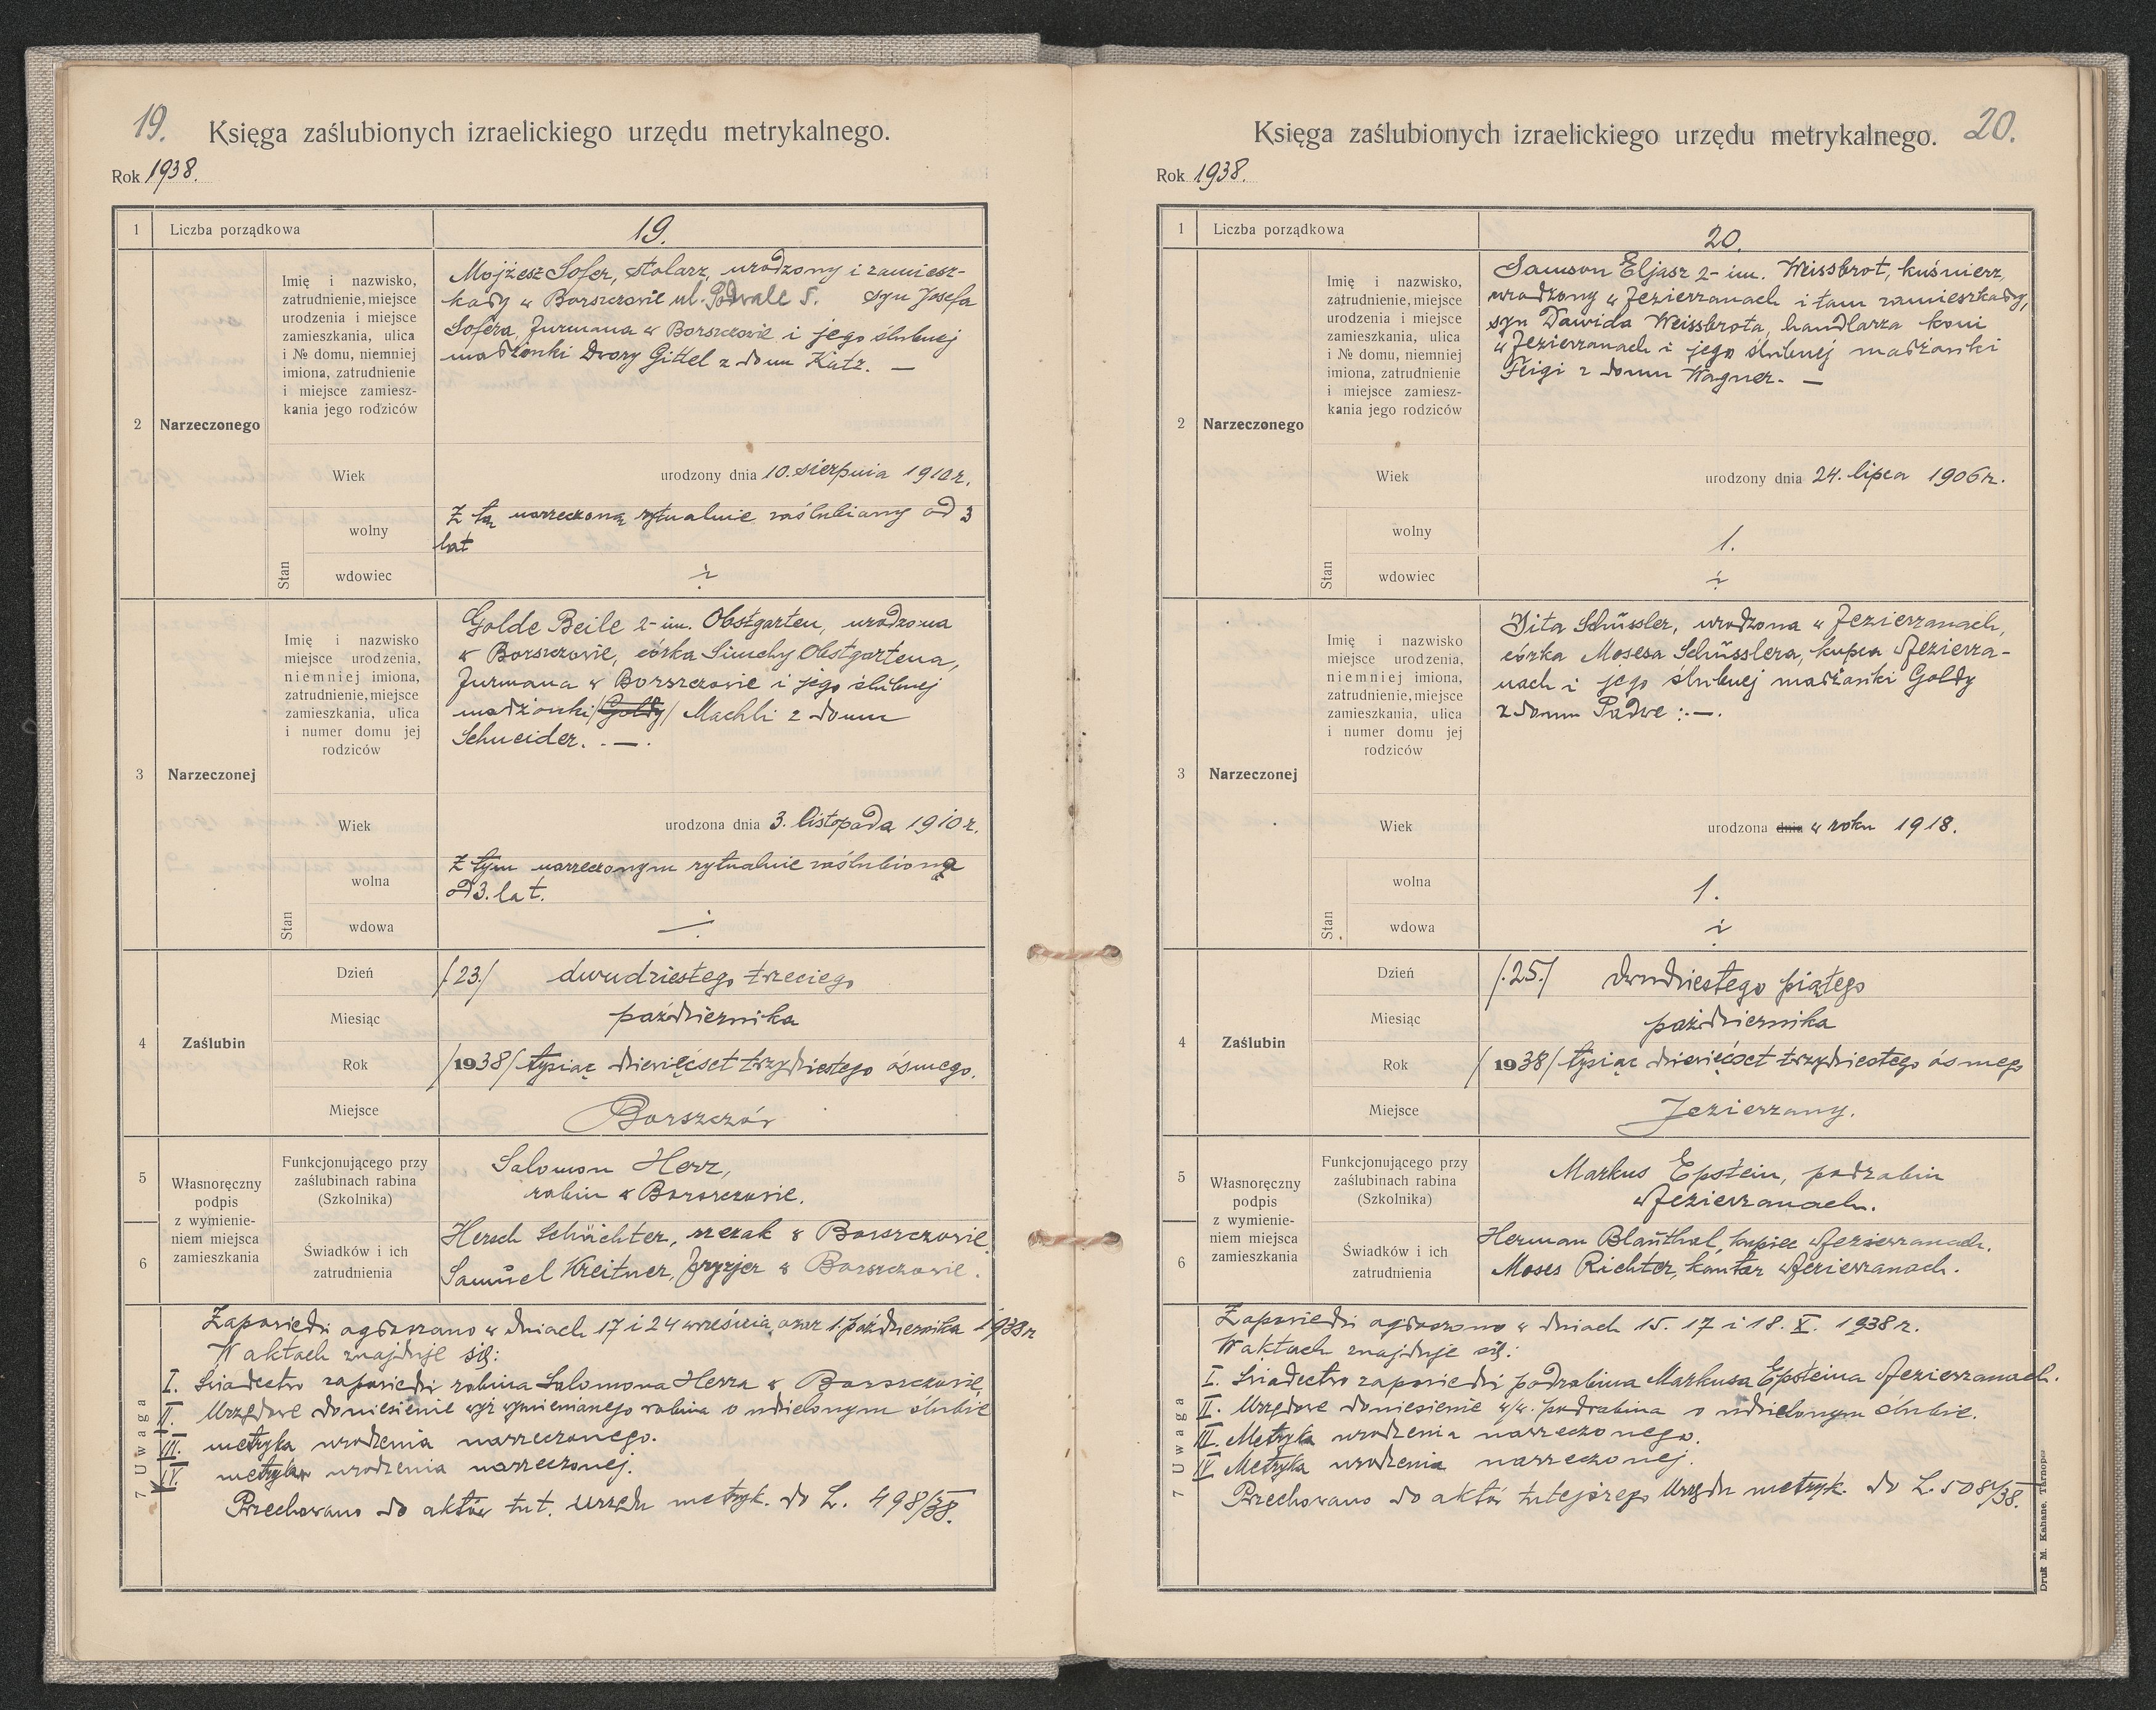 19.
Księga zaślubionych izraelickiego urzędu metrykalnego.
Rok 1938.
1 Liczba porządkowa 19.
2 Narzeczonego
Imię i nazwisko,
zatrudnienie, miejsce
urodzenia i miejsce
zamieszkania, ulica
i № domu, niemniej
imiona, zatrudnienie
i miejsce zamiesz-
kania jego rodziców
Mojżesz Sofer, stolarz, urodzony i zamiesz-
kały w Borszczowie ul. Podwale 5. syn Josefa
Sofera, furmana w Borszczowie i jego ślubnej
małżonki Dwory Gittel z domu Katz. —
Wiek urodzony dnia 10. sierpnia 1910 r.
Stan
wolny Z tą narzeczoną rytualnie zaślubiany od 3
lat
wdowiec
3 Narzeczonej
Imię i nazwisko
miejsce urodzenia,
niemniej imiona,
zatrudnienie, miejsce
zamieszkania, ulica
i numer domu jej
rodziców
Golde Beile 2-im. Obstgarten, urodzona
w Borszczowie, córka Simchy Obstgartena,
furmana w Borszczowie i jego ślubnej
małżonki /Goldy/ Machli z domu
Schneider. . — .
Wiek urodzona dnia 3. listopada 1910 r.
Stan
wolna Z tym narzeczonym rytualnie zaślubiona
od 3. lat.
wdowa
4 Zaślubin
Dzień /23./ dwudziestego trzeciego
Miesiąc października
Rok /1938/ tysiąc dziewięćset trzydziestego ósmego.
Miejsce Borszczów
5
6
Własnoręczny
podpis
z wymienie-
niem miejsca
zamieszkania
Funkcjonującego przy
zaślubinach rabina
(Szkolnika)
Salomon Herz,
rabin w Borszczowie.
Świadków i ich
zatrudnienia
Hersch Schächter, rzezak w Borszczowie,
Samuel Kreitner, fryzjer w Borszczowie.
7 Uwaga
Zapowiedzi ogłoszono w dniach 17 i 24 września, oraz 1. października 1938 r
W aktach znajduje się:
I. Świadectwo zapowiedzi rabina Salomona Herza w Borszczowie,
II. Urzędowe doniesienie wyż wymienianego rabina o udzielonym ślubie
III. metryka urodzenia narzeczonego.
IV. metryka urodzenia narzeczonej.
Przechowano do aktów tut. Urzędu metryk. do L. 498/38.
20.
Księga zaślubionych izraelickiego urzędu metrykalnego.
Rok 1938.
1 Liczba porządkowa 20.
2 Narzeczonego
Imię i nazwisko,
zatrudnienie, miejsce
urodzenia i miejsce
zamieszkania, ulica
i № domu, niemniej
imiona, zatrudnienie
i miejsce zamiesz-
kania jego rodziców
Samson Eljasz 2-im. Weissbrot, kuśnierz,
urodzony w Jezierzanach i tam zamieszkały,
syn Dawida Weissbrota, handlarza koni
w Jezierzanach i jego ślubnej małżonki
Feigi z domu Wagner. —
Wiek urodzony dnia 24. lipca 1906 r.
Stan
wolny 1.
wdowiec
3 Narzeczonej
Imię i nazwisko
miejsce urodzenia,
niemniej imiona,
zatrudnienie, miejsce
zamieszkania, ulica
i numer domu jej
rodziców
Dita Schüssler, urodzona w Jezierzanach,
córka Mosesa Schüsslera, kupca w Jezierza-
nach i jego ślubnej małżonki Goldy
z domu Padwe :. — .
Wiek urodzona dnia w roku 1918.
Stan
wolna 1.
wdowa
4 Zaślubin
Dzień /.25./ dwudziestego piątego
Miesiąc października
Rok /1938/ tysiąc dziewięćset trzydziestego ósmego
Miejsce Jezierzany.
5
6
Własnoręczny
podpis
z wymienie-
niem miejsca
zamieszkania
Funkcjonującego przy
zaślubinach rabina
(Szkolnika)
Markus Epstein, podrabin
w Jezierzanach.
Świadków i ich
zatrudnienia
Herman Blauthal, kupiec w Jezierzanach.
Moses Richter, kantor w Jezierzanach.
7 Uwaga
Zapowiedzi ogłoszono w dniach 15. 17 i 18. X. 1938 r.
W aktach znajduje się:
I. Świadectwo zapowiedzi podrabina Markusa Epsteina w Jezierzanach.
II. Urzędowe doniesienie w/w. podrabina o udzielonym ślubie.
III. Metryka urodzenia narzeczonego.
IV Metryka urodzenia narzeczonej.
Przechowano do aktów tutejszego Urzędu metryk. do L. 508/38.
Druk M. Kahane, Tarnopol